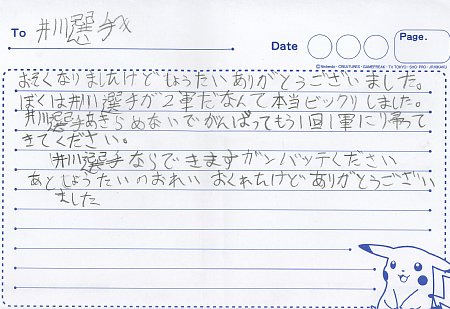 To 井川選手へ
Date
Page.
©Nintendo・CREATURES・GAMEFREAK・TV TOKYO・SHO-PRO・JR KIKAKU
おそくなりましたけどしょうたいありがとうございました。
ぼくは井川選手が2軍だなんて本当ビックリしました。
井川選手あきらめないでがんばってもう1回1軍にり帰って
きてください。
井川選手ならできますガンバッテください
あとしょうたいのおれい おくれたけどありがとうござい
ました